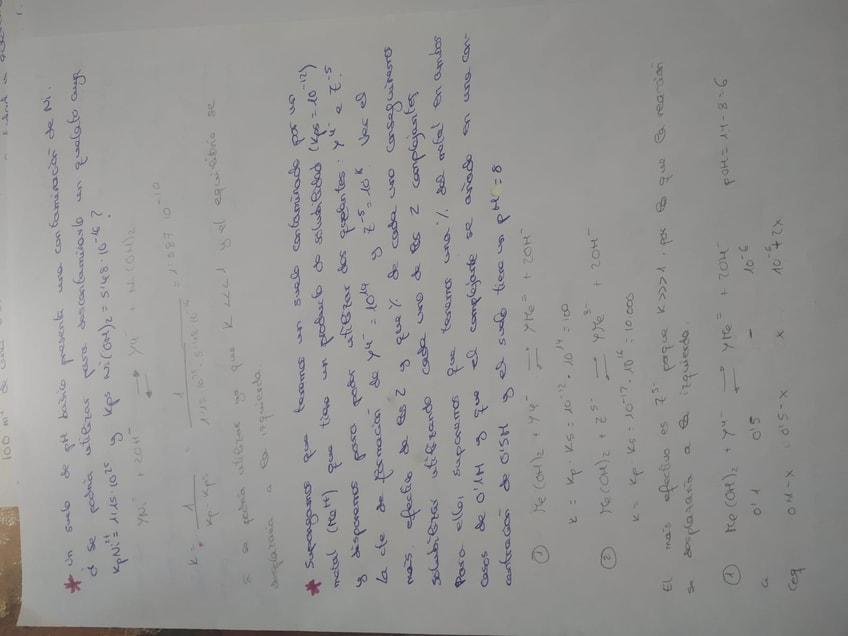 100 m² de una
* Un suelo de pH básico presenta una contaminación de Ni.
¿ se podría utilizar para descontaminarlo un quelato cuya
KpNi = 1'15·10²⁵ y Kps Ni(OH)₂ = 5'48·10⁻¹⁶ ?
YNi⁼ + 2OH⁻ ⇌ Y⁴⁻ + Ni(OH)₂
K = 1 / Kp·Kps = 1 / 1'15·10²⁵·5'48·10⁻¹⁶ = 1'587·10⁻¹⁰
se podría utilizar ya que K <<< 1 y el equilibrio se
desplazaría a la izquierda.
* Supongamos que tenemos un suelo contaminado por un
metal (Me²⁺) que tiene un producto de solubilidad (Kps = 10⁻¹²)
y disponemos para poder utilizar dos quelantes: Y⁴⁻ e Z⁻⁵
La cte de formación de Y⁴⁻ = 10¹⁴ y Z⁻⁵ = 10¹⁶. Ver el
más efectivo de los 2 y que % de cada uno conseguiremos
solubilizar utilizando cada uno de los 2 complejantes.
Para ello, suponemos que tenemos una % del metal en ambos
casos de 0'1M y que el complejante se añade en una con-
centración de 0'5M y el suelo tiene un pH = 8
① Me(OH)₂ + Y⁴⁻ ⇌ YMe⁼ + 2OH⁻
K = Kp·Ks = 10⁻¹²·10¹⁴ = 100
② Me(OH)₂ + Z⁵⁻ ⇌ YMe³⁻ + 2OH⁻
K = Kp·Ks = 10⁻¹²·10¹⁶ = 10.000
El más efectivo es Z⁵⁻ porque K>>>1, por lo que la reacción
se desplazaría a la izquierda.
① Me(OH)₂ + Y⁴⁻ ⇌ YMe⁼ + 2OH⁻ pOH = 14-8=6
a 0'1 0'5 - 10⁻⁶
Ceq 0'1-x 0'5-x x 10⁻⁶+2x